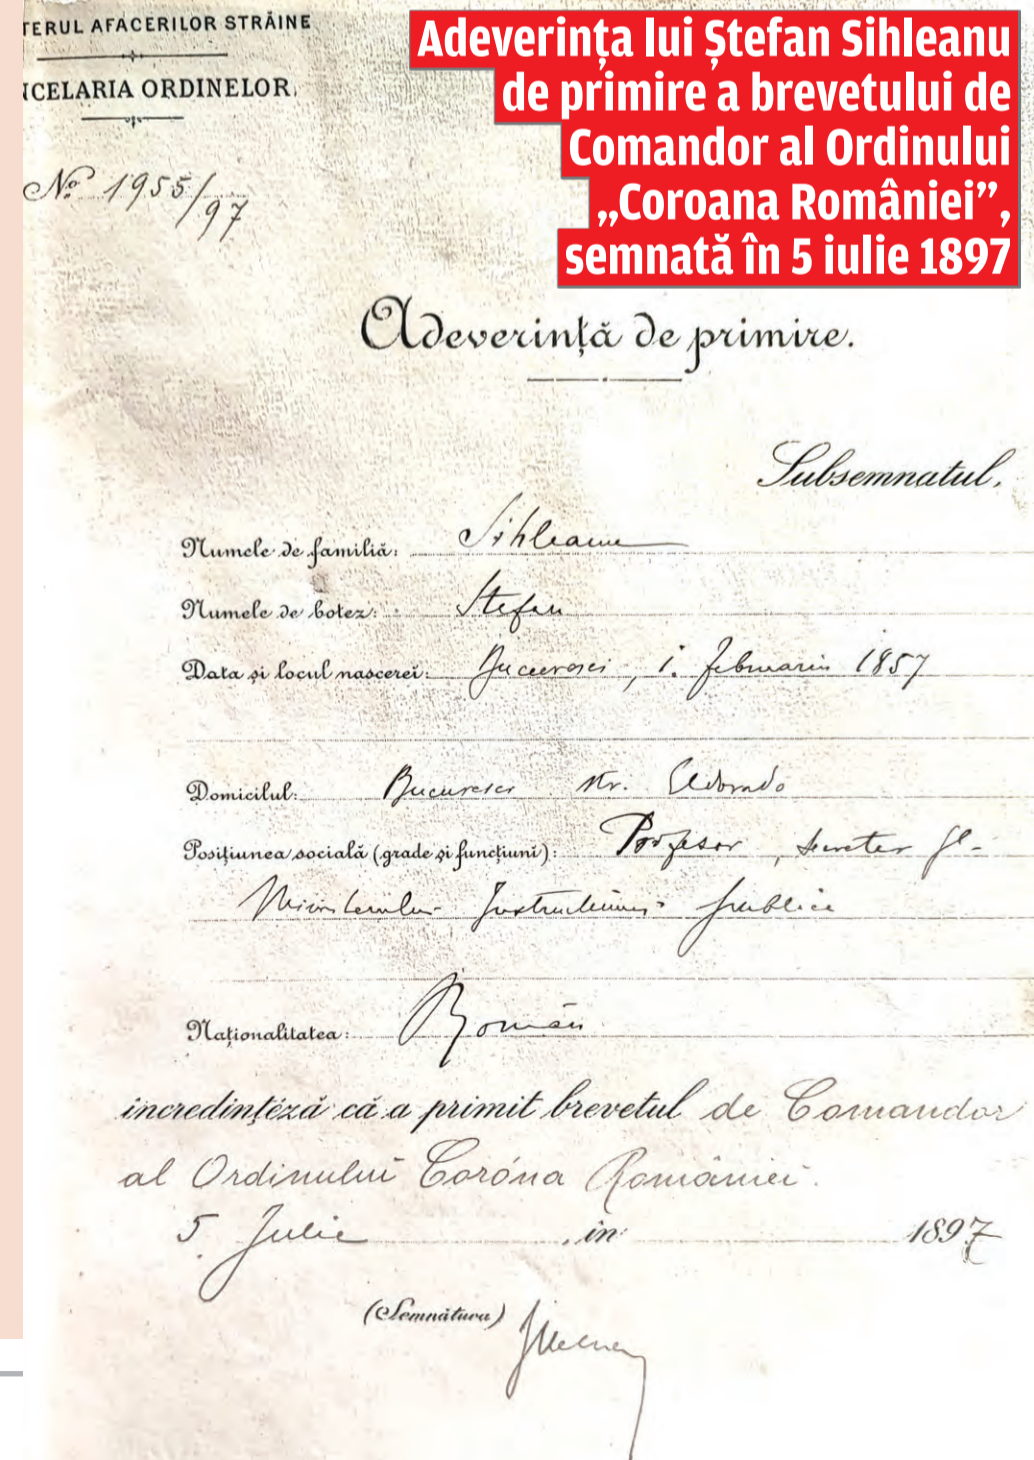 TERUL AFACERILOR STRĂINE
CELARIA ORDINELOR.
No. 1955/97
Adeverința lui Ștefan Sihleanu
de primire a brevetului de
Comandor al Ordinului
„Coroana României”,
semnată în 5 iulie 1897
Adeverință de primire.
Subsemnatul,
Numele de familiă: Sihleanu
Numele de botez: Stefan
Data și locul nascerei: Bucuresci, 1. februariu 1857
Domicilul: Bucuresci str. Eldorado
Posițiunea socială (grade și funcțiuni): Profesor, secretar gl-
Ministerului Instructiunii publice
Naționalitatea: Român
incredințéză că a primit brevetul de Comandor
al Ordinului Coróna României.
5. Julie , in 1897
(Semnătura)